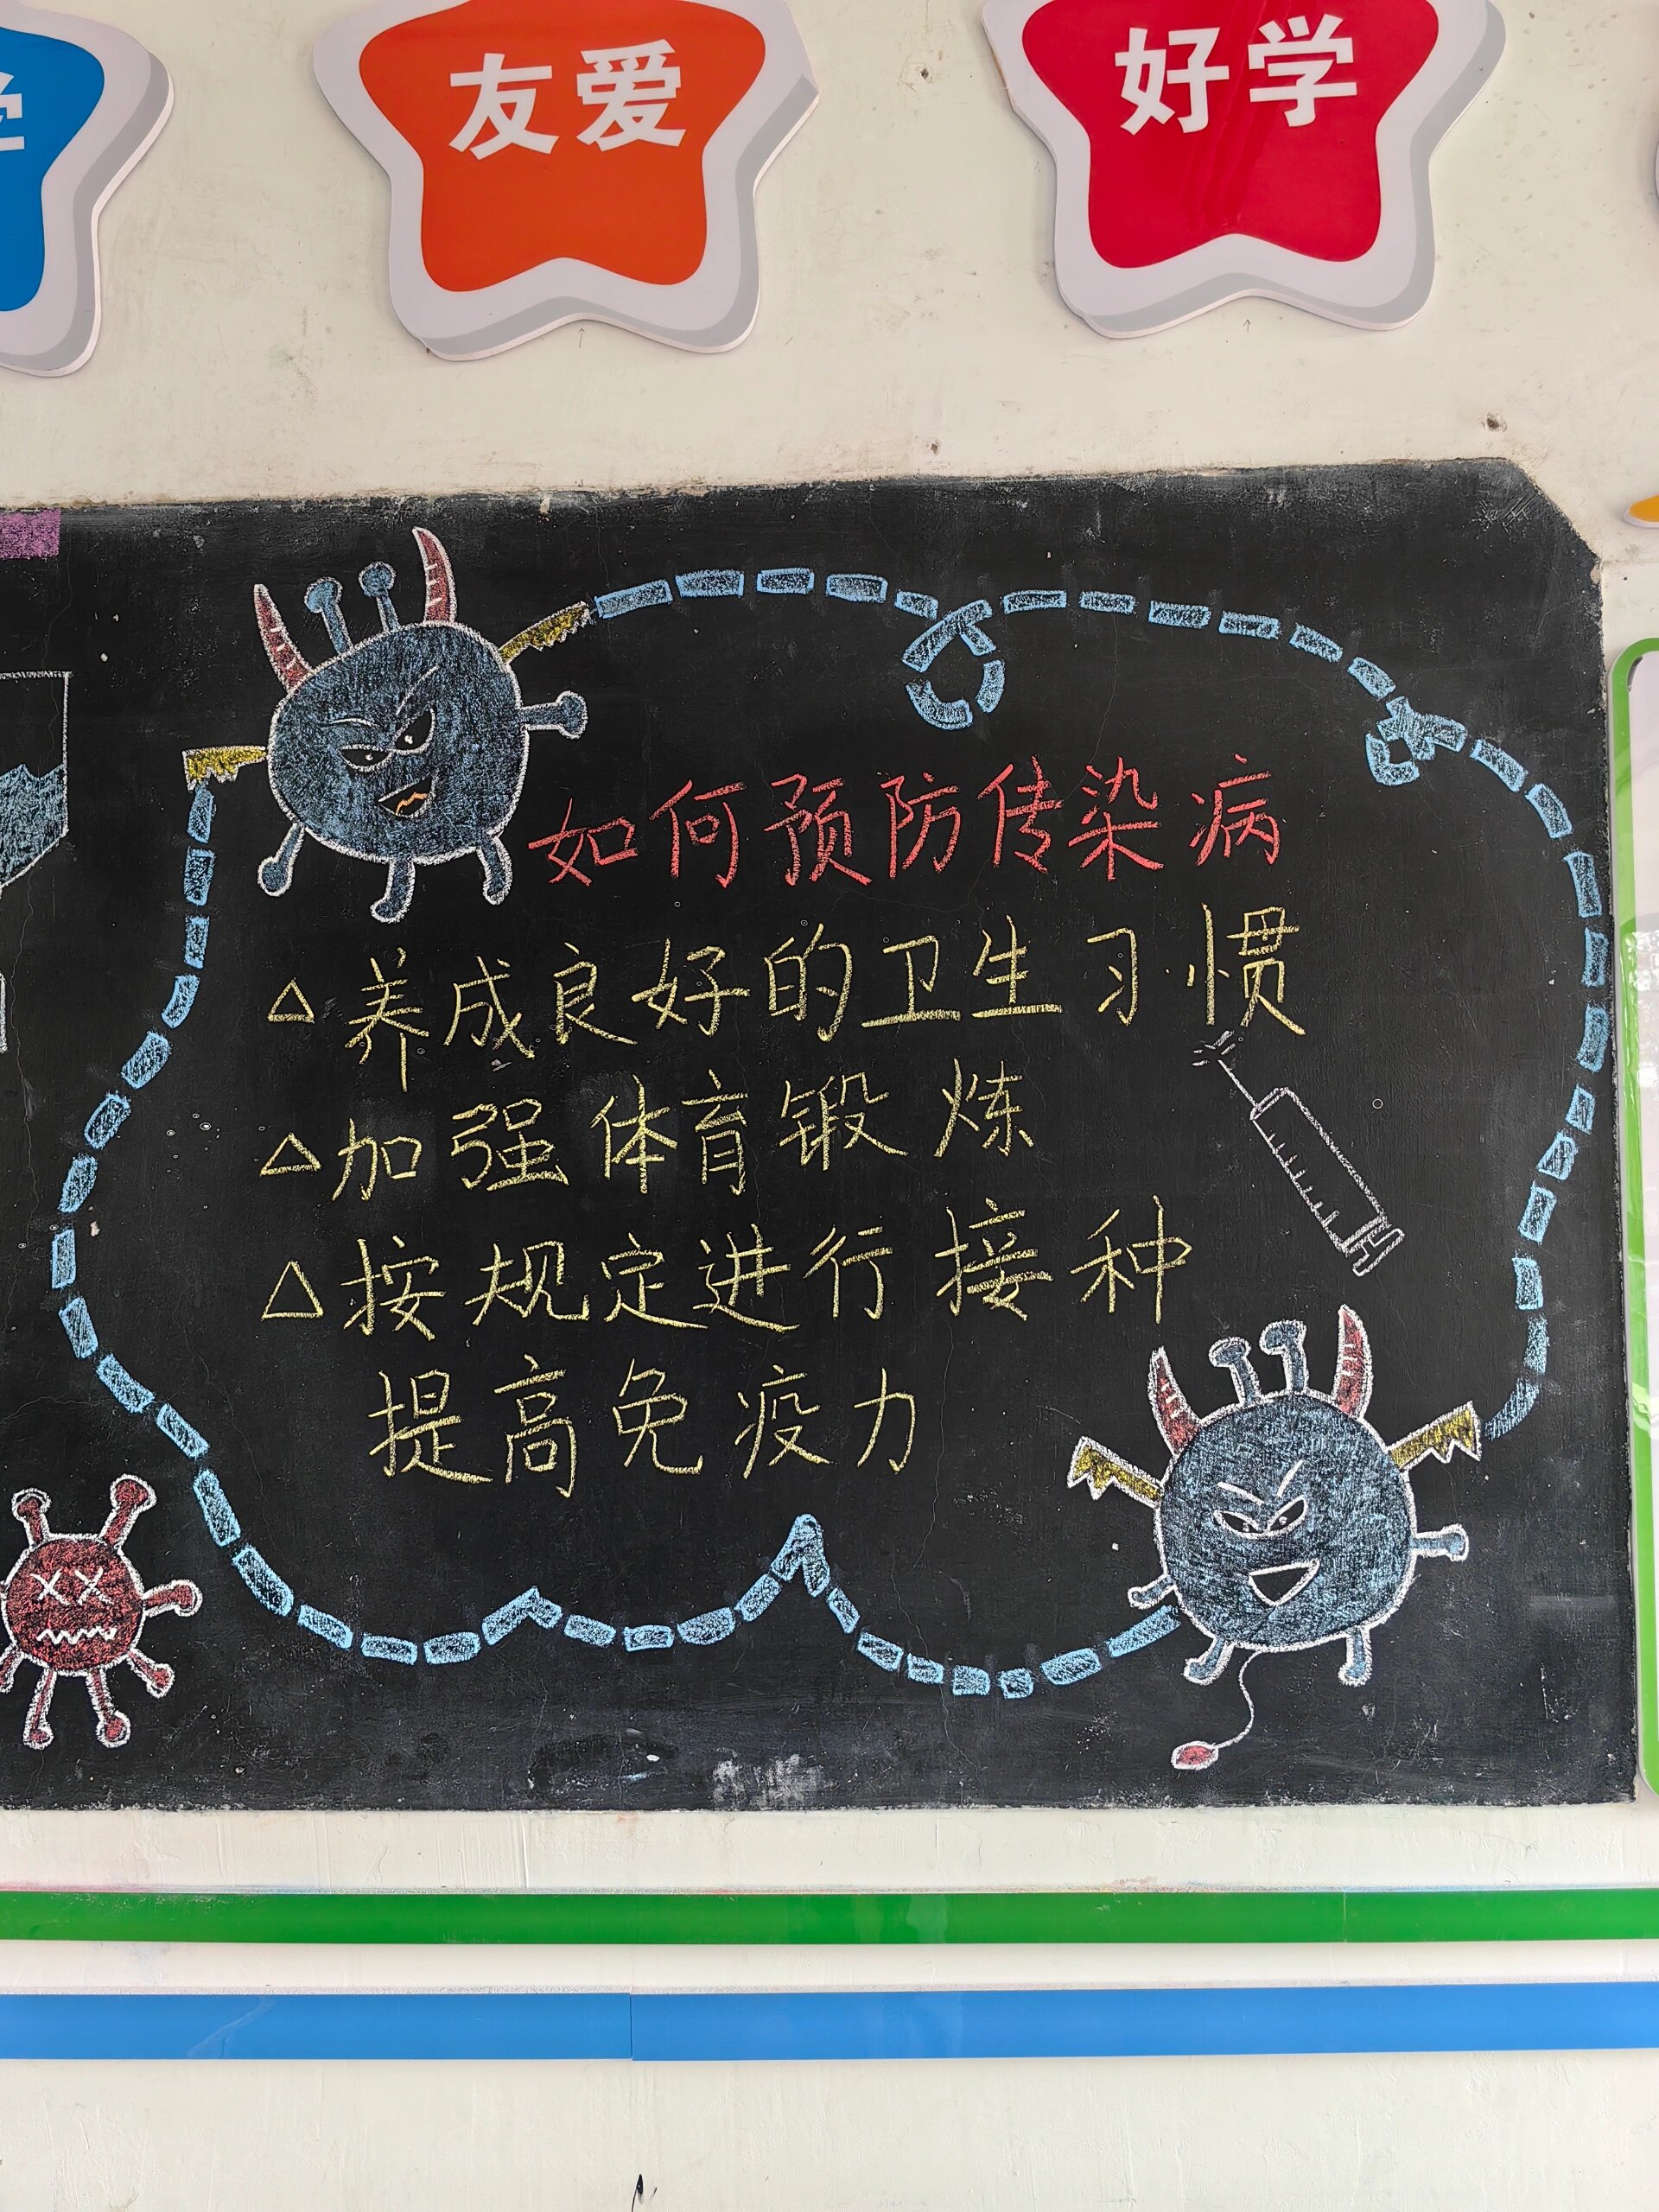 友爱
好学
如何预防传染病
△养成良好的卫生习惯
△加强体育锻炼
△按规定进行接种
提高免疫力